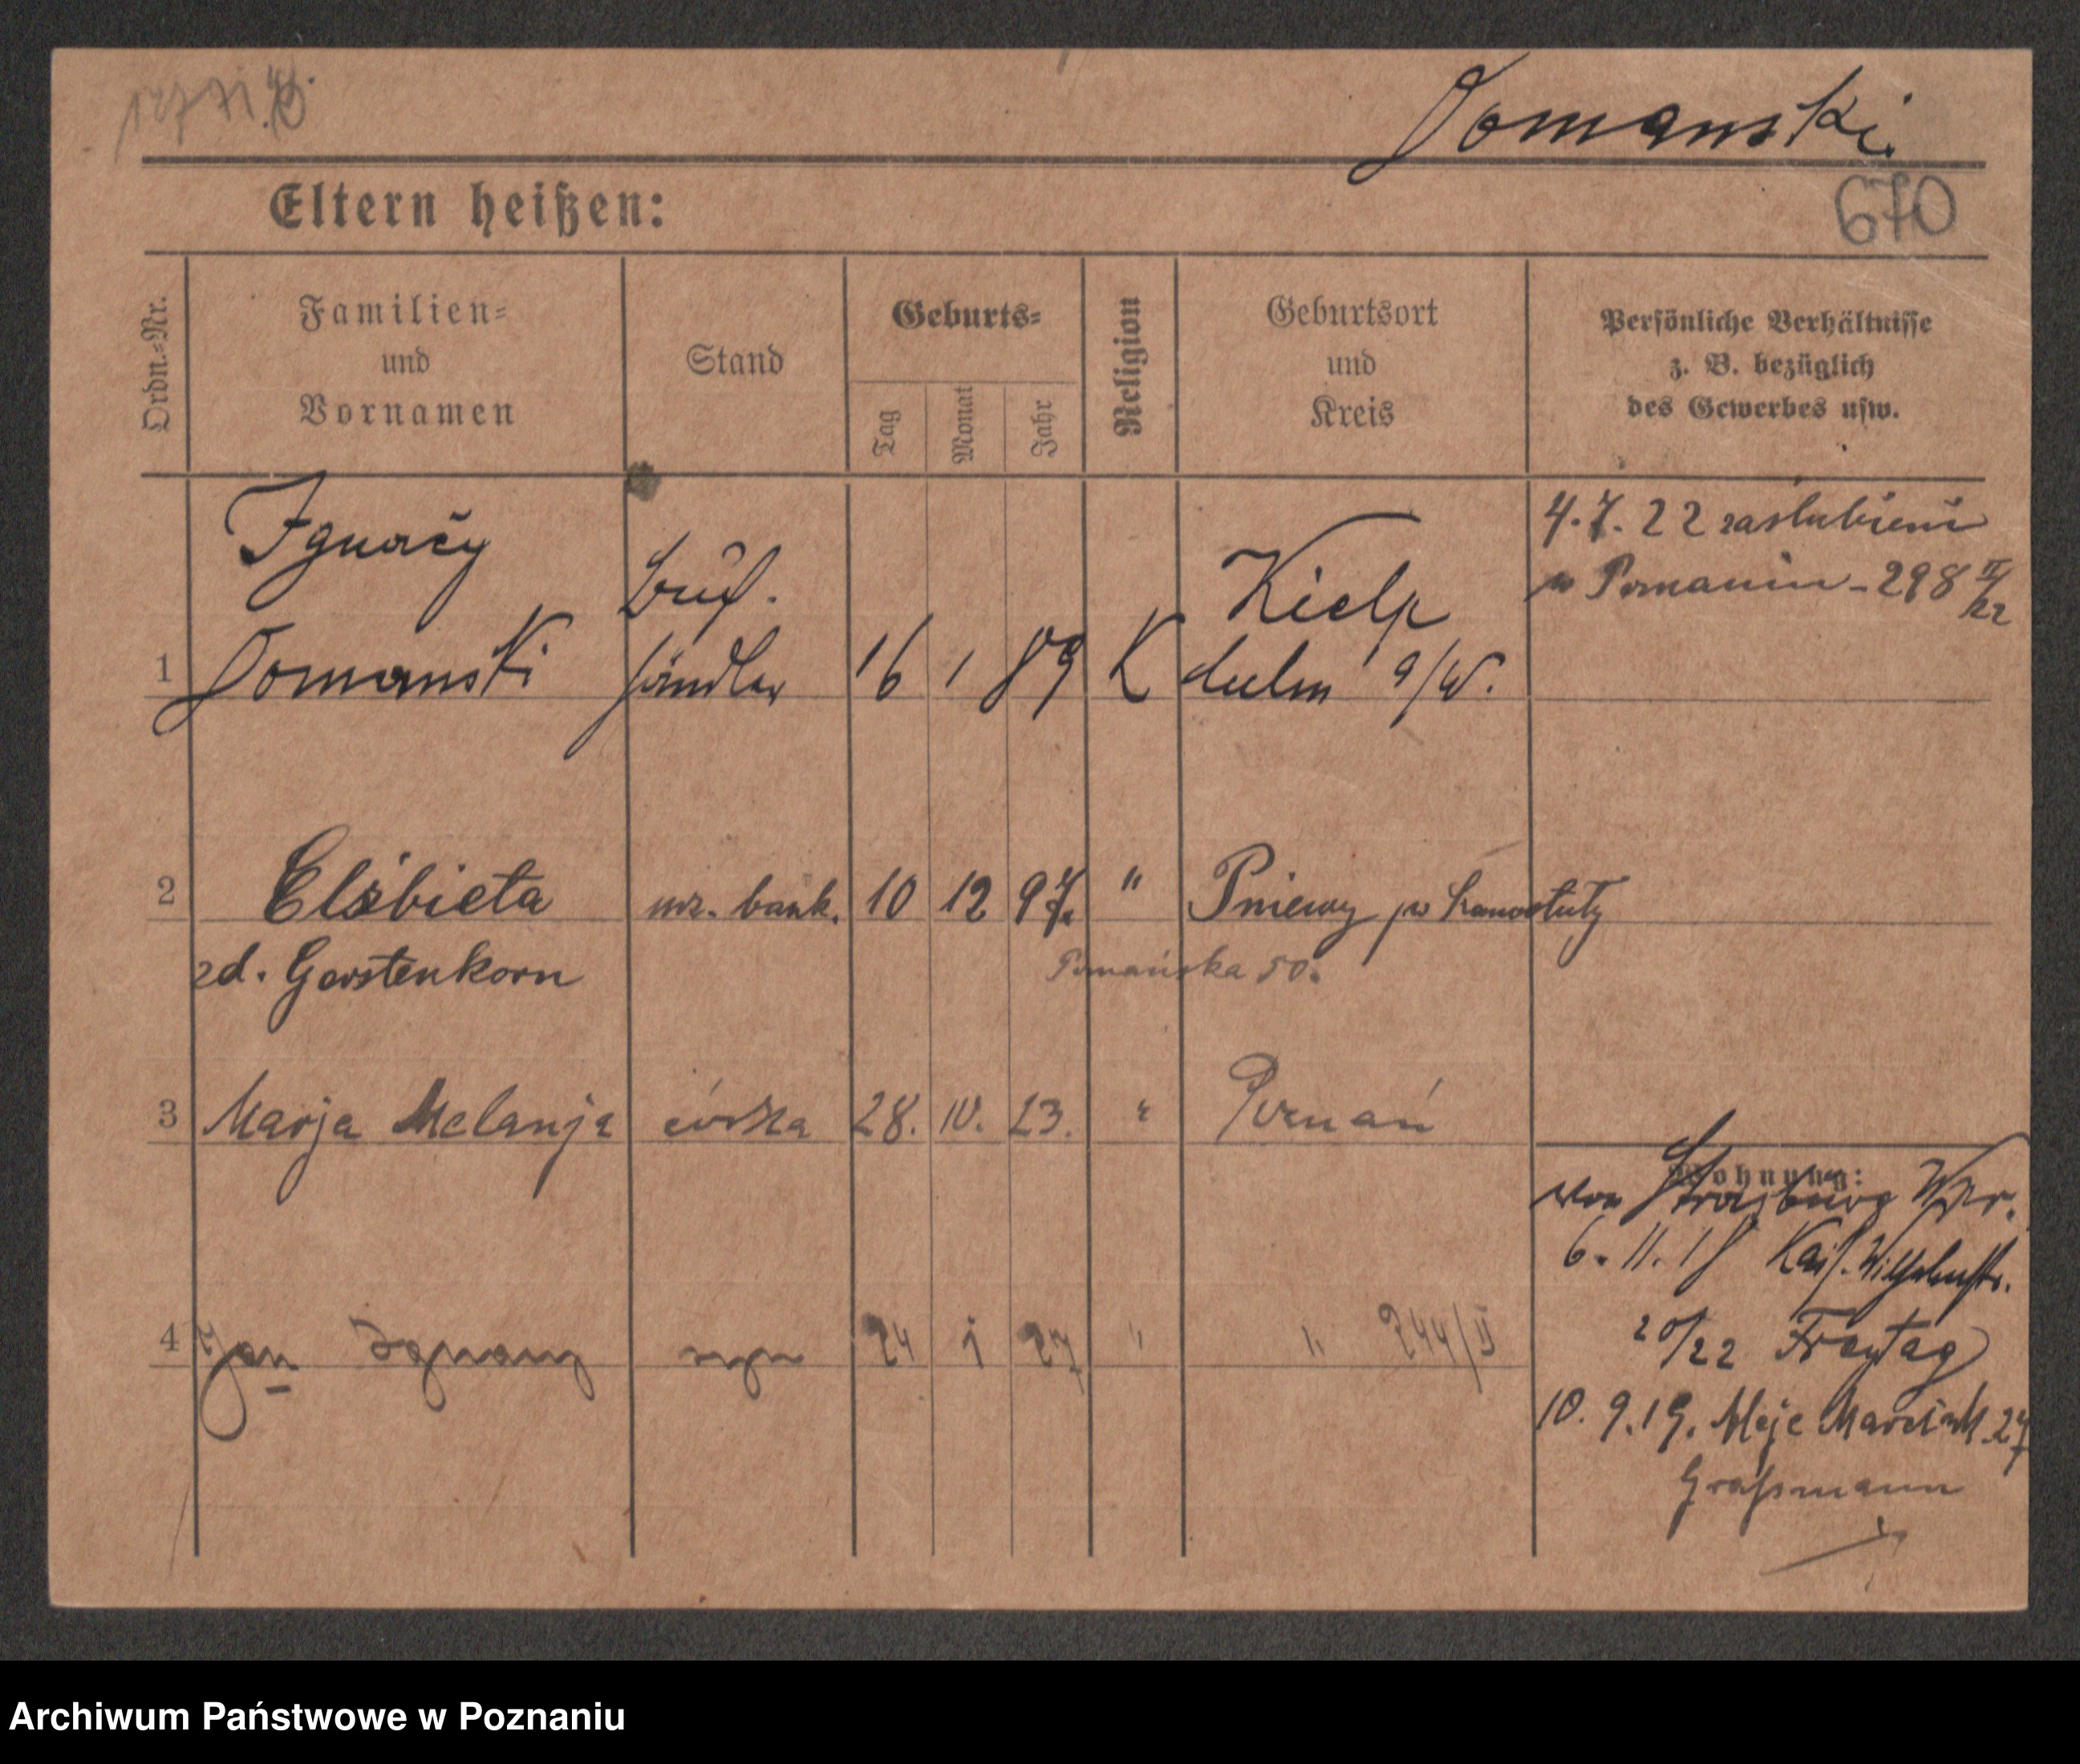 Domanski.
670
Eltern heißen:
Ordn.=Nr.
Familien=
und
Vornamen
Stand
Geburts=
Tag
Monat
Jahr
Religion
Geburtsort
und
Kreis
Persönliche Verhältnisse
z. B. bezüglich
des Gewerbes usw.
Ignacy
Buch.
Kielp
4.7.22 zaślubieni
w Poznaniu - 298 II/22
1 Domanski händler 16 1 89 K Culm a/W.
2 Elżbieta urz. bank. 10 12 97 " Pniewy pw Szamotuły
zd. Gerstenkorn
Poznańska 50.
3 Marja Melanja córka 28. 10. 23. " Poznań
Wohnung:
von Strasburg Wpr.
6.11.18 Kais. Wilhelmstr.
20/22 Freytag
4 Jan Ignacy syn 24 1 27 " " 244/II
10.9.19. Aleje Marcink. 27
Graßmann
Archiwum Państwowe w Poznaniu